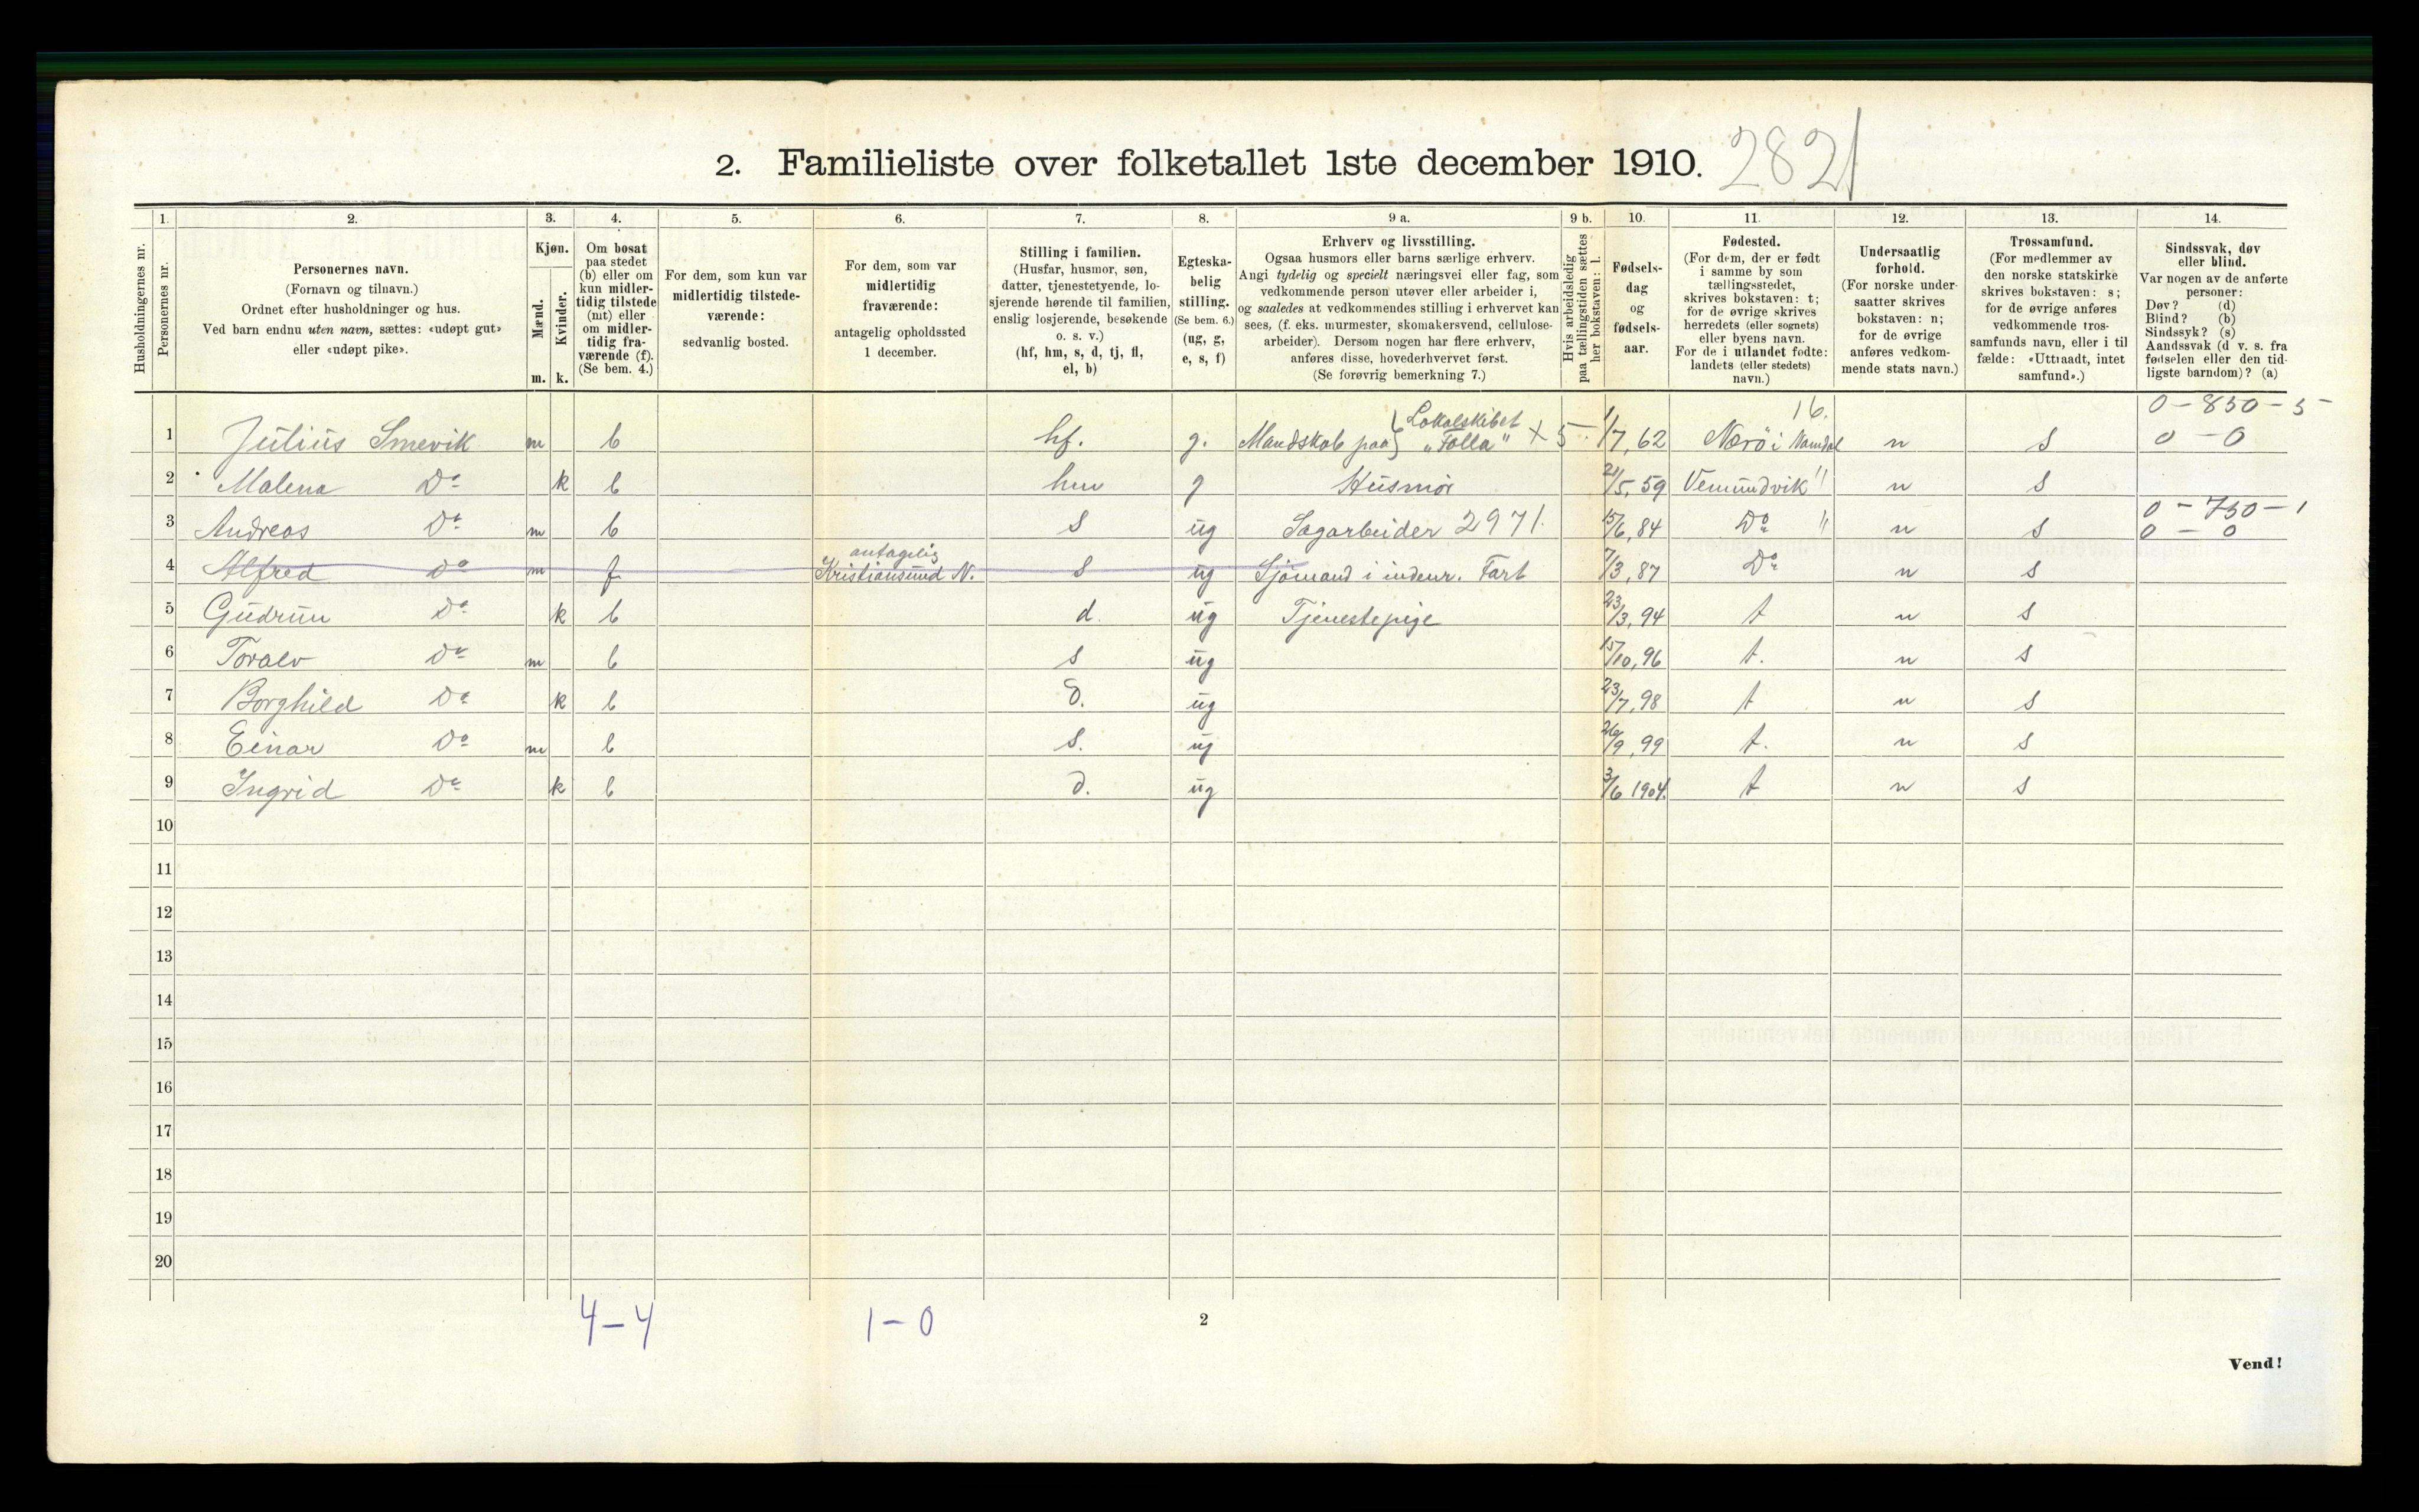 2. Familieliste over folketallet 1ste december 1910. 2821
1. 2. 3. 4. 5. 6. 7. 8. 9 a. 9 b. 10. 11. 12. 13. 14.
Husholdningernes nr.
Personernes nr.
Personernes navn.
(Fornavn og tilnavn.)
Ordnet efter husholdninger og hus.
Ved barn endnu uten navn, sættes: «udøpt gut»
eller «udøpt pike».
Kjøn.
Mænd.
Kvinder.
m. k.
Om bosat
paa stedet
(b) eller om
kun midler-
tidig tilstede
(mt) eller
om midler-
tidig fra-
værende (f).
(Se bem. 4.)
For dem, som kun var
midlertidig tilstede-
værende:
sedvanlig bosted.
For dem, som var
midlertidig
fraværende:
antagelig opholdssted
1 december.
Stilling i familien.
(Husfar, husmor, søn,
datter, tjenestetyende, lo-
sjerende hørende til familien,
enslig losjerende, besøkende
o. s. v.)
(hf, hm, s, d, tj, fl,
el, b)
Egteska-
belig
stilling.
(Se bem. 6.)
(ug, g,
e, s, f)
Erhverv og livsstilling.
Ogsaa husmors eller barns særlige erhverv.
Angi tydelig og specielt næringsvei eller fag, som
vedkommende person utøver eller arbeider i,
og saaledes at vedkommendes stilling i erhvervet kan
sees, (f. eks. murmester, skomakersvend, cellulose-
arbeider). Dersom nogen har flere erhverv,
anføres disse, hovederhvervet først.
(Se forøvrig bemerkning 7.)
Hvis arbeidsledig
paa tællingstiden sættes
her bokstaven: l.
Fødsels-
dag
og
fødsels-
aar.
Fødested.
(For dem, der er født
i samme by som
tællingsstedet,
skrives bokstaven: t;
for de øvrige skrives
herredets (eller sognets)
eller byens navn.
For de i utlandet fødte:
landets (eller stedets)
navn.)
Undersaatlig
forhold.
(For norske under-
saatter skrives
bokstaven: n;
for de øvrige
anføres vedkom-
mende stats navn.)
Trossamfund.
(For medlemmer av
den norske statskirke
skrives bokstaven: s;
for de øvrige anføres
vedkommende tros-
samfunds navn, eller i til
fælde: «Uttraadt, intet
samfund».)
Sindssvak, døv
eller blind.
Var nogen av de anførte
personer:
Døv? (d)
Blind? (b)
Sindssyk? (s)
Aandssvak (d v. s. fra
fødselen eller den tid-
ligste barndom)? (a)
Lokalskibet 16. 0-850-5
1 Julius Smevik m b hf. g. Mandskab paa "Folla" × 5 1/7, 62 Nærö i Namdal n s 0-0
2 Malena Do k b hm g Husmor 21/5, 59 Vemundvik " n s
0-750-1
3 Andreas Do m b s ug Sagarbeider 2971. 15/6, 84 Do " n s 0-0
antagelig
4 Alfred Do m f Kristiansund N. s ug Sjömand i indenr. Fart 7/3, 87 Do n s
5 Gudrun Do k b d. ug Tjenestepige 23/3, 94 t n s
6 Toralv Do m b s ug 15/10, 96 t. n s
7 Borghild Do k b d. ug 23/7, 98 t n s
8 Einar Do m b s. ug 26/9, 99 t. n s
9 Ingrid Do k b d. ug 3/6 1904. t n s
10
11
12
13
14
15
16
17
18
19
20
4-4 1-0 2
Vend!